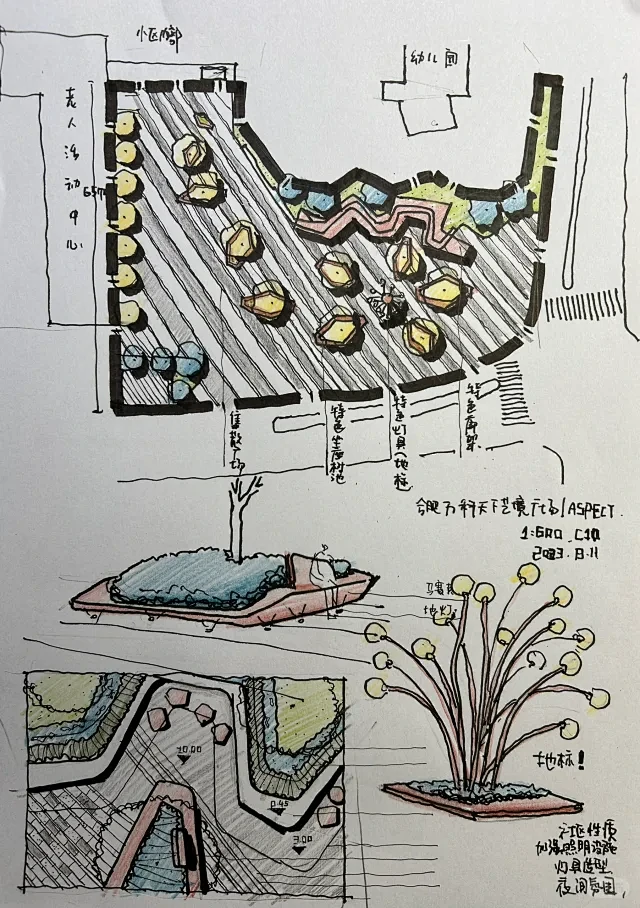 幼儿园
老人活动中心
65m
集散广场
特色坐凳树池
特色灯具(地标)
特色廊架
合肥万科天下艺境广场/ASPECT.
1:600
2023.8.11
马赛
地灯
地标!
±0.00
0.45
3.00
社区性质
加强照明设施
灯具造型
夜间氛围,